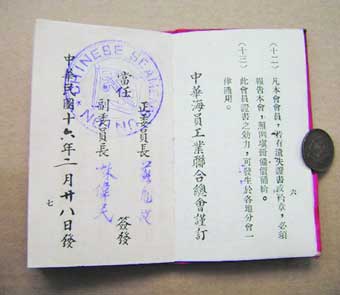 六
(十二) 凡本會會員，若有遺失證書或約章，必須
報告本會，照章備價補領。
(十三) 此會員證書之効力，可發生於各地分會一
律適用。
中華海員工業聯合總會謹訂
CHINESE SEAMEN
UNION
正委員長
當任
副委員長 林偉民
簽發
中華民國十六年二月廿八日發
七